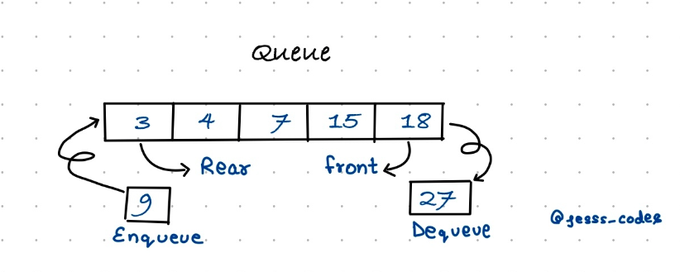 Queue
3 4 7 15 18
Rear front
9 27
Enqueue Dequeue
@jesss_codes